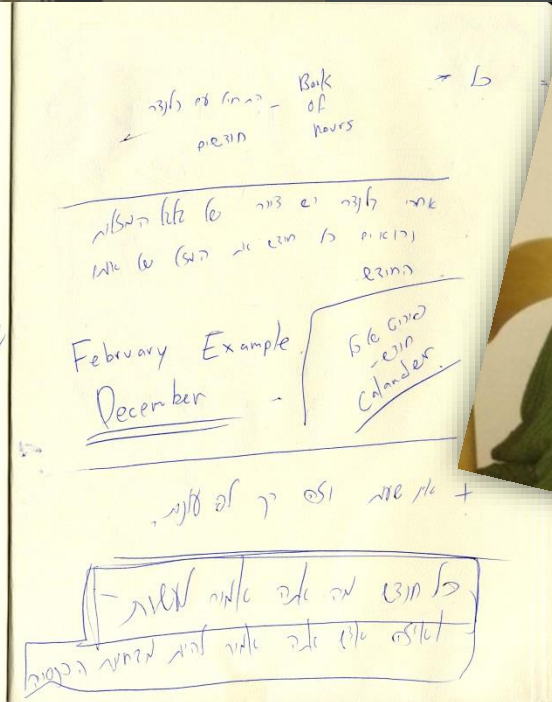 כל =
Book
of
hours
התחיל עם קלנדר -
חודשים
אחרי קלנדר יש ציור של גלגל המזלות
ורואים כל חודש את המזל של אותו
החודש
February Example
December -
חודש -
Calander
+ אין שעות וזה רק לפי עונות.
כל חודש מה אתה אמור לעשות -
ואיזה איש אתה אמור להיות מבחינת הכנסיה